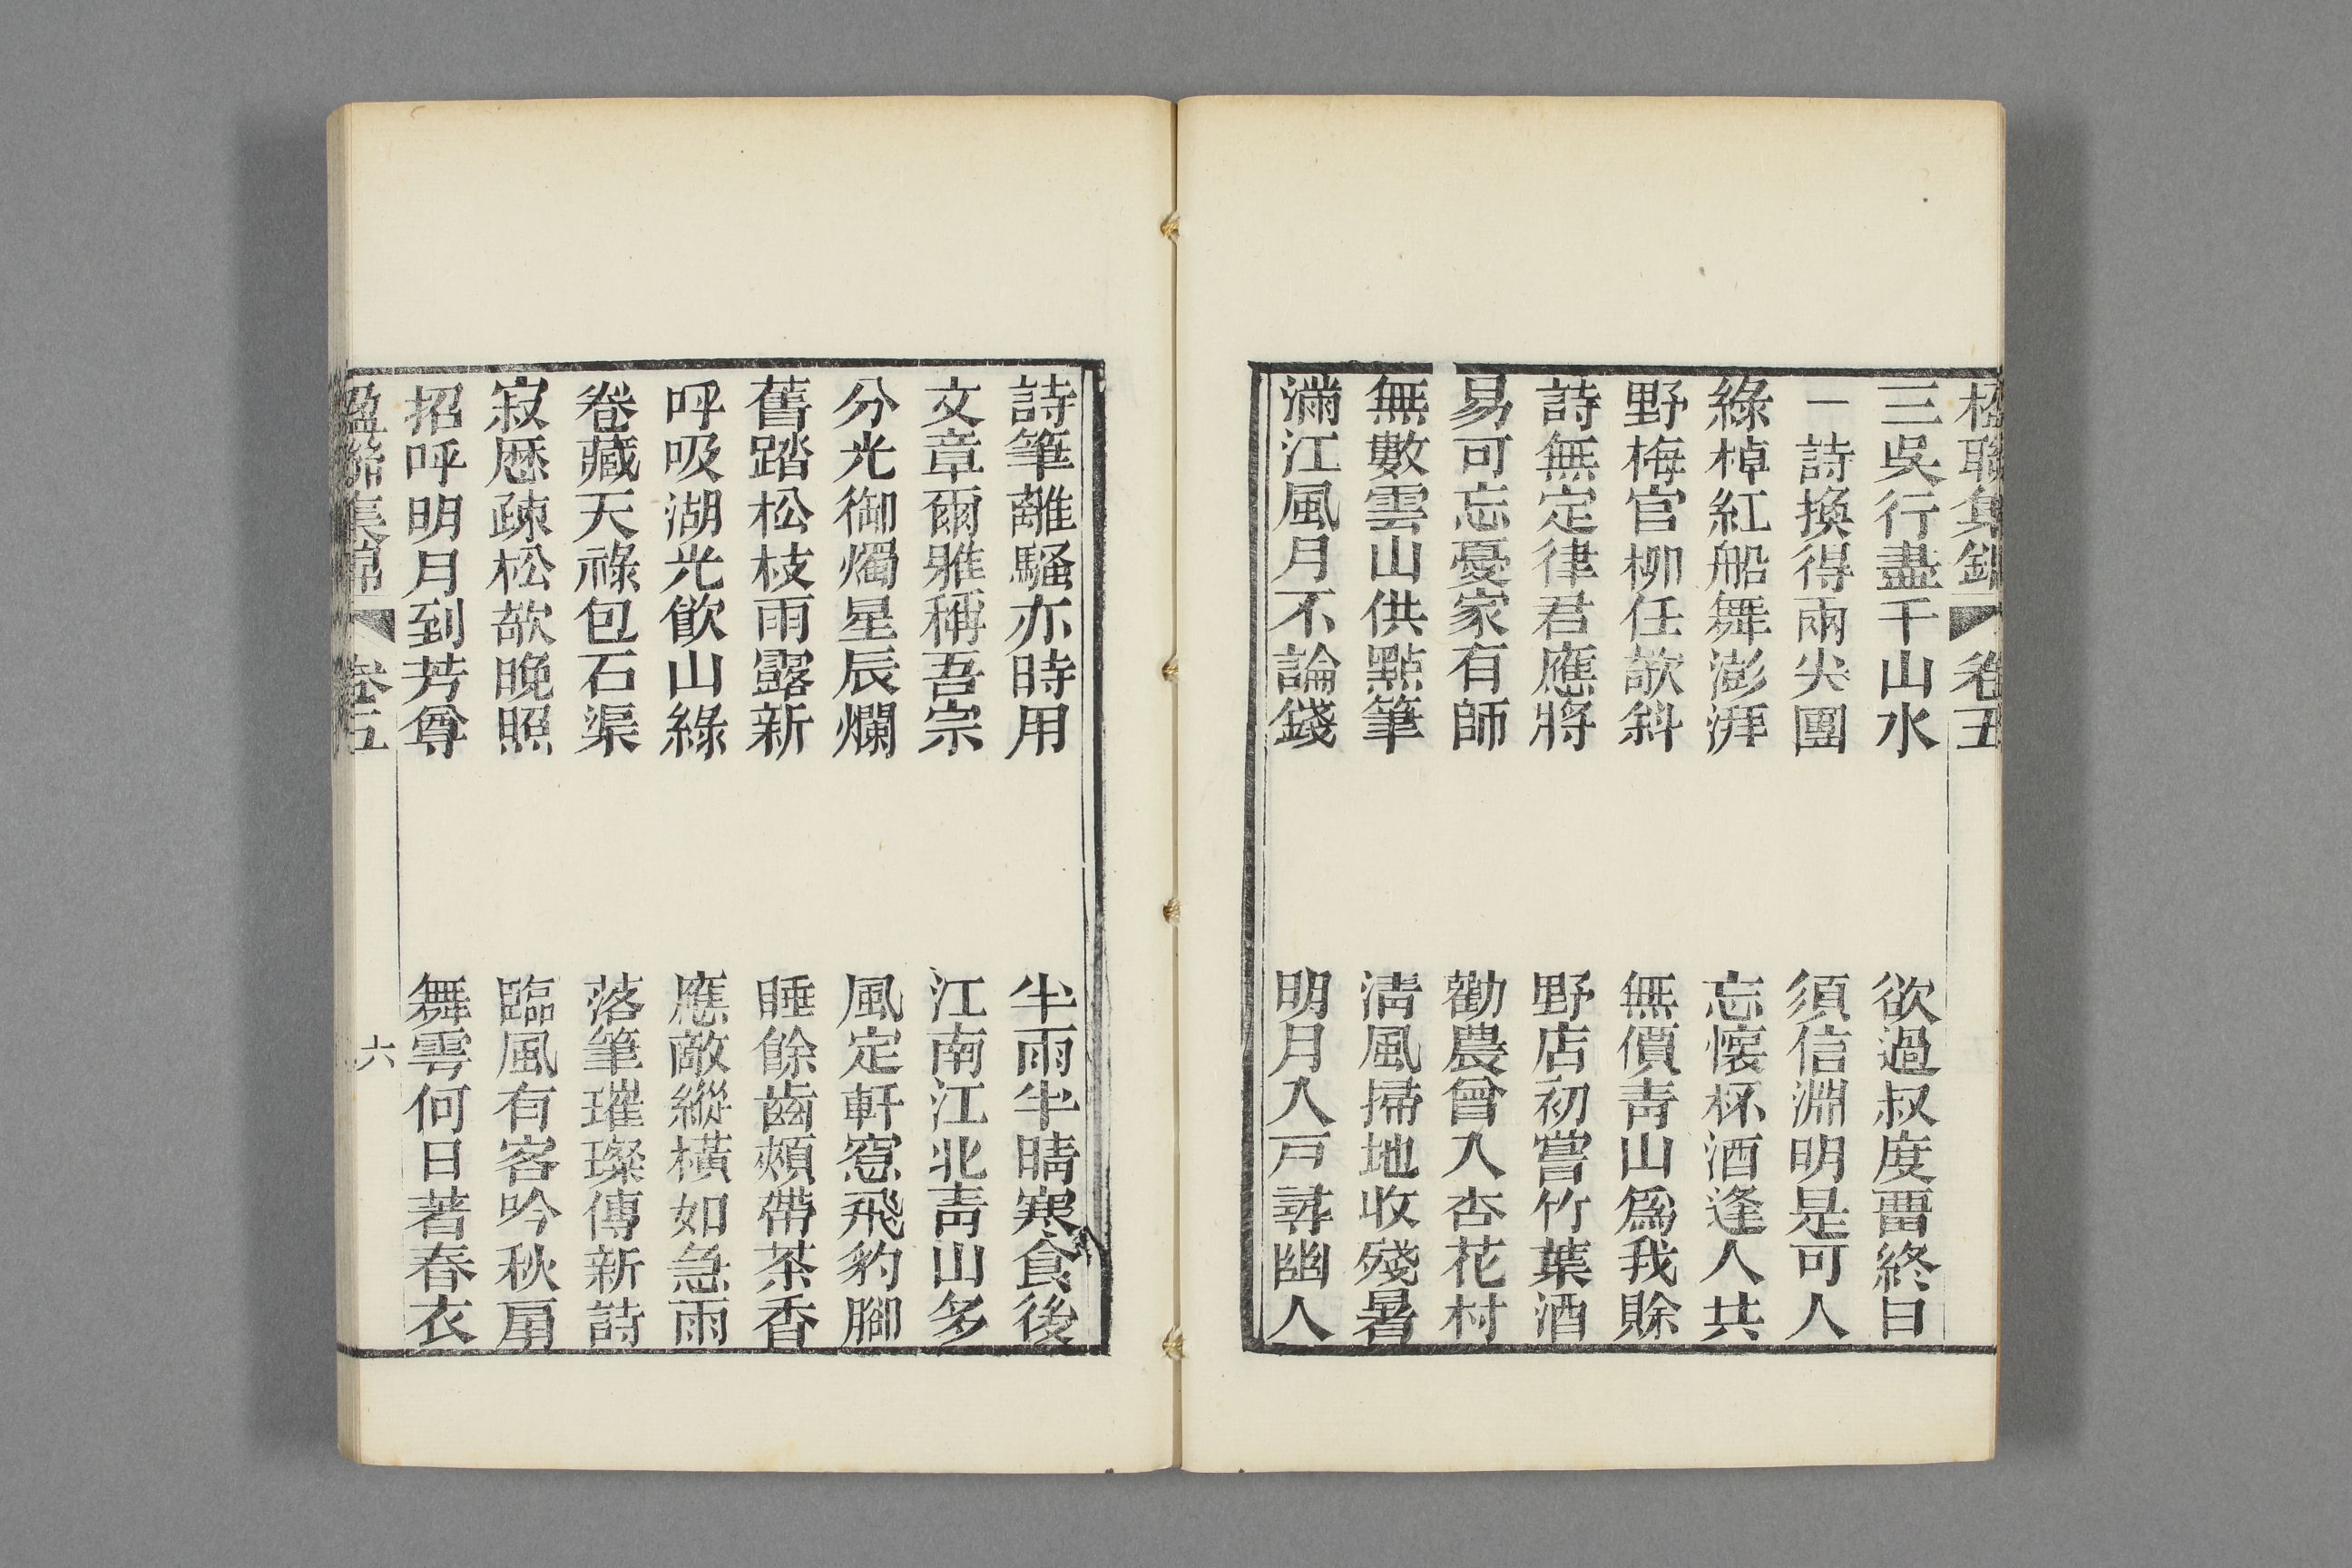 楹聯集錦 卷五
三吳行盡千山水 欲過叔度畱終日
一詩換得兩尖團 須信淵明是可人
綠棹紅船舞澎湃 忘懷杯酒逢人共
野梅官柳任欹斜 無價青山爲我賒
詩無定律君應將 野店初嘗竹葉酒
易可忘憂家有師 勸農曾入杏花村
無數雲山供點筆 清風掃地收殘暑
滿江風月不論錢 明月入戶尋幽人
詩筆離騷亦時用 半雨半晴寒食後
文章爾雅稱吾宗 江南江北青山多
分光御燭星辰爛 風定軒窗飛豹腳
舊踏松枝雨露新 睡餘齒頰帶茶香
呼吸湖光飲山綠 應敵縱橫如急雨
卷藏天祿包石渠 落筆璀璨傳新詩
寂歷疎松欹晚照 臨風有客吟秋扇
招呼明月到芳尊 舞雩何日著春衣
楹聯集錦 卷五 六